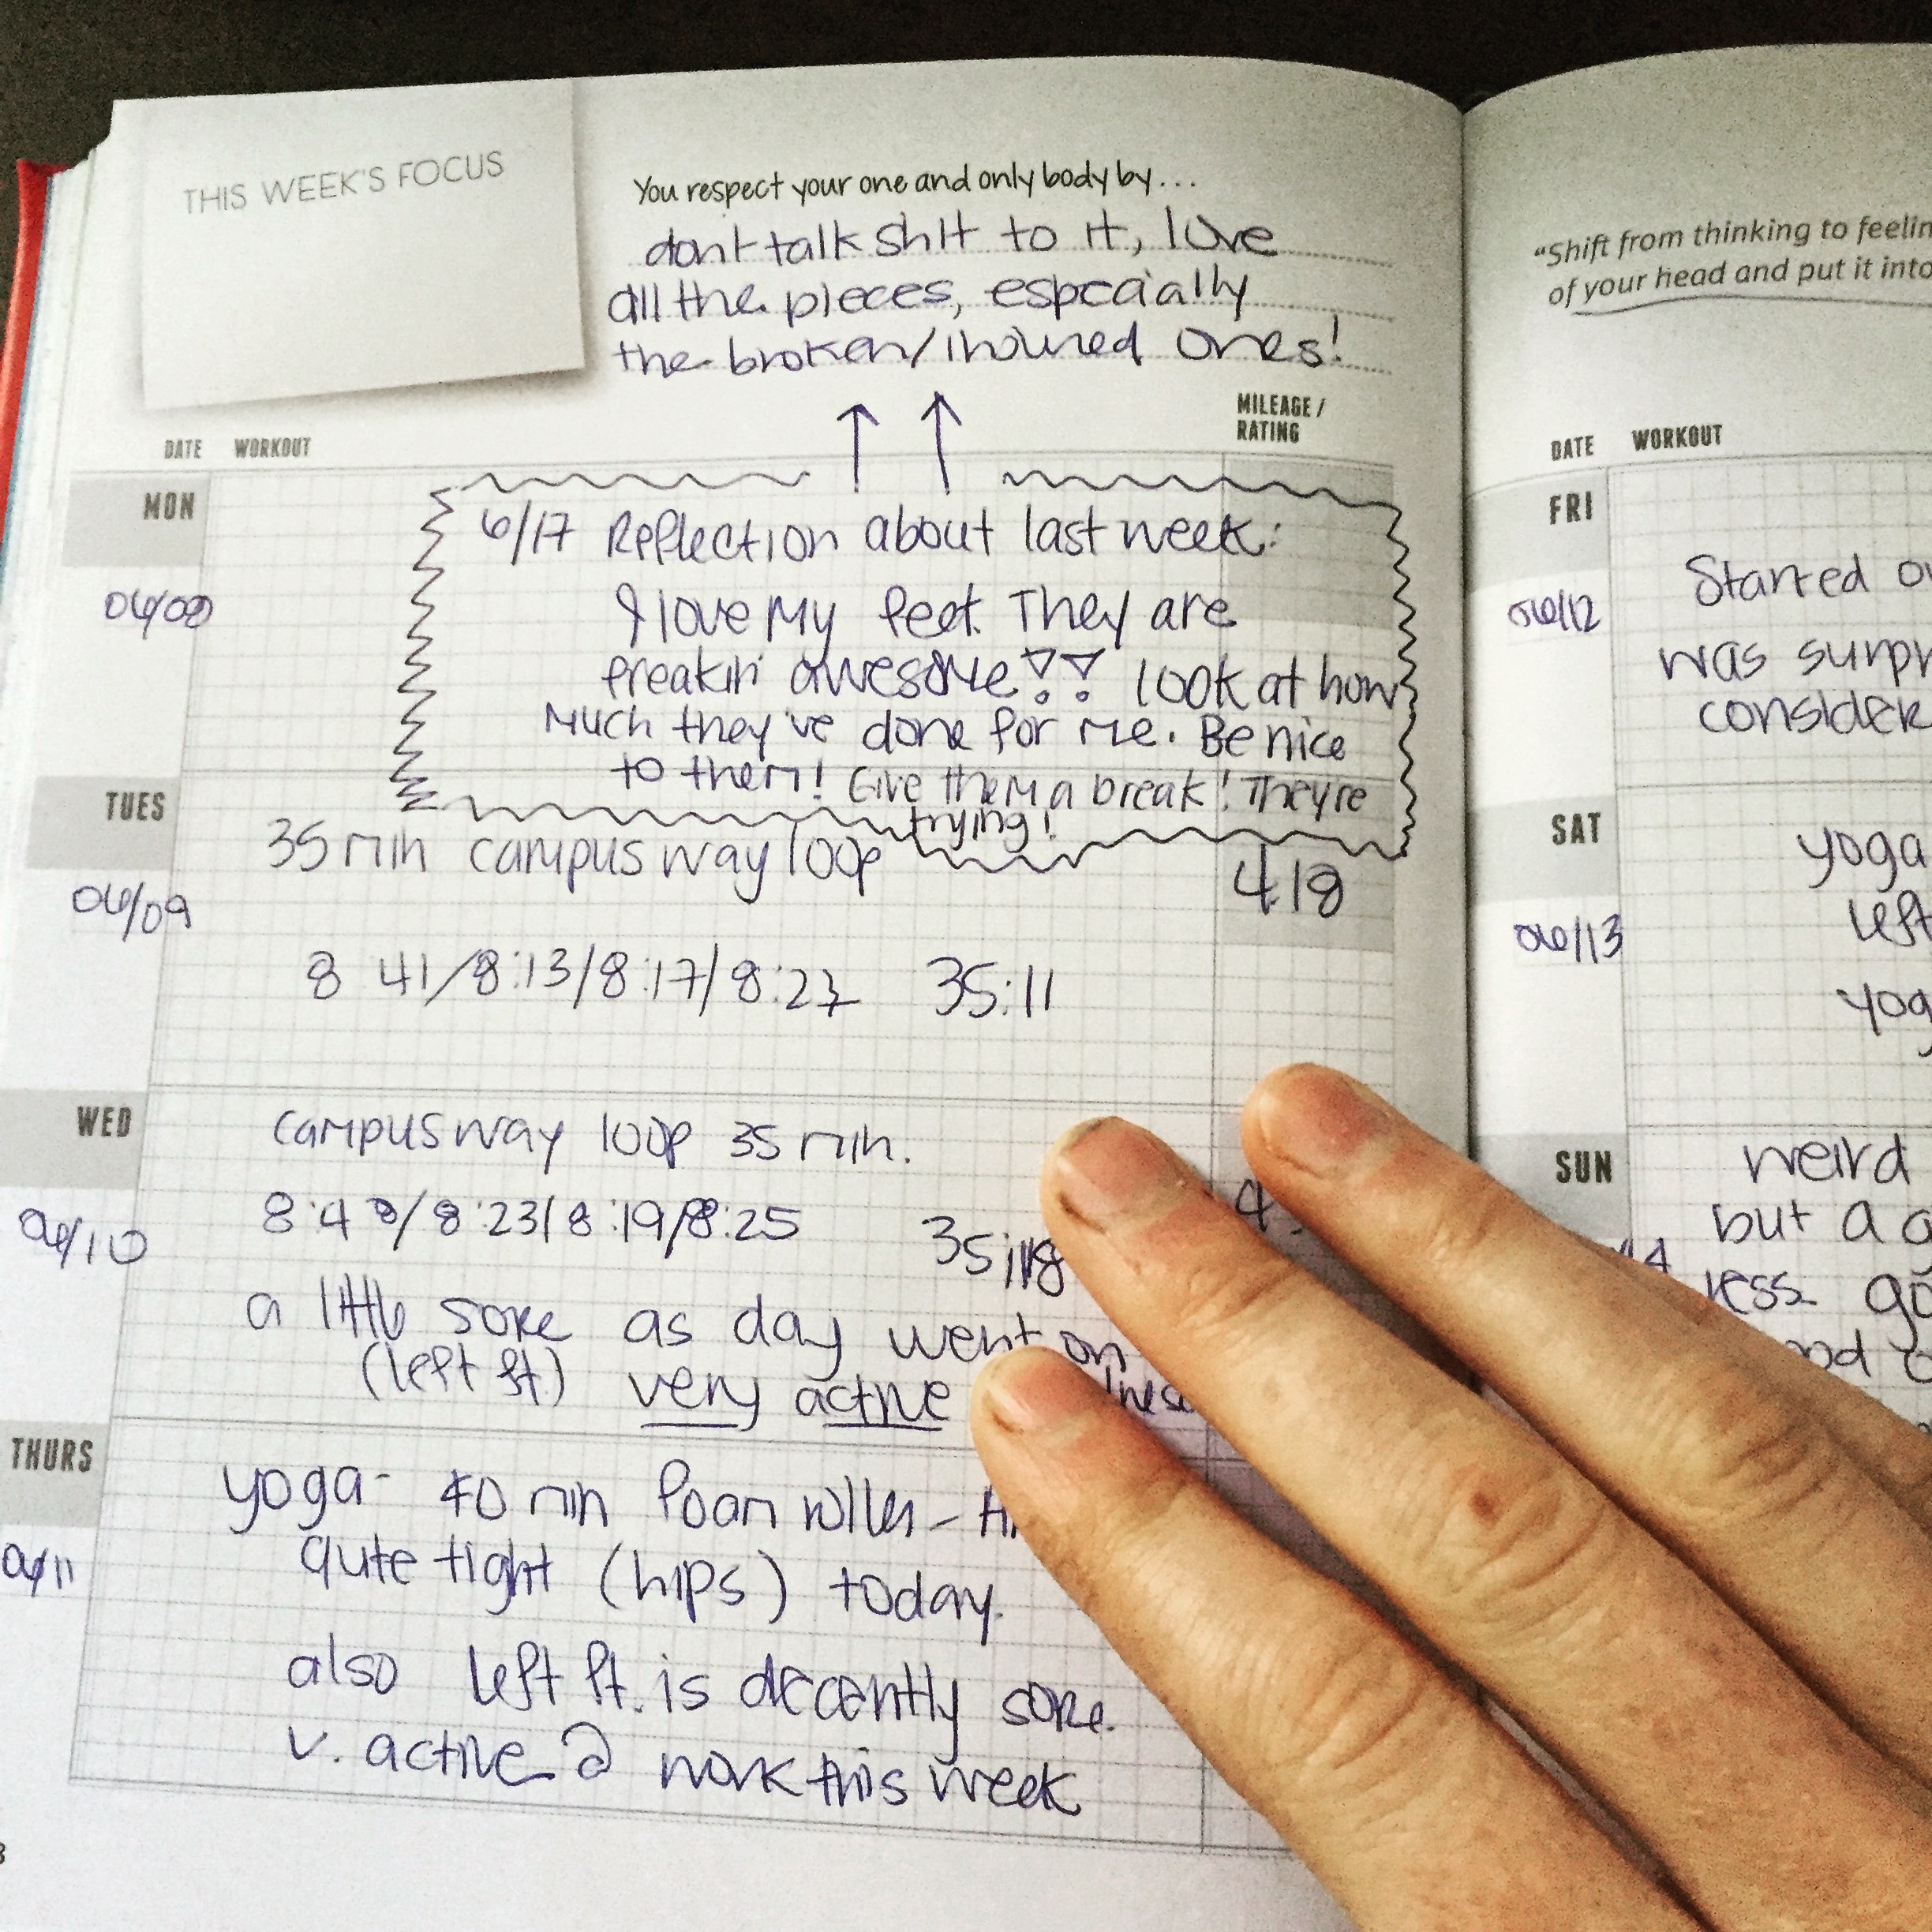 THIS WEEK'S FOCUS
You respect your one and only body by...
don't talk shit to it, love
all the pieces, especially
the broken/injured ones!
MILEAGE /
RATING
DATE WORKOUT
MON
06/08
6/17 Reflection about last week:
I love my feet. They are
freakin' awesome!! Look at how
much they've done for me. Be nice
to them! Give them a break! They're
trying!
TUES
06/09
35 min campus way loop
4.18
8:41/8:13/8:17/8:23 35:11
WED
06/10
campus way loop 35 min.
8:48/8:23/8:19/8:25 35:18
4.
a little sore as day went on
(left ft) very active
THURS
06/11
yoga - 40 min foam roller -
quite tight (hips) today.
also left ft. is decently sore.
v. active @ work this week
"Shift from thinking to feelin
of your head and put it into
DATE WORKOUT
FRI
06/12
Started
was surpr
consider
SAT
06/13
yoga
left
yog
SUN
weird
but a
less